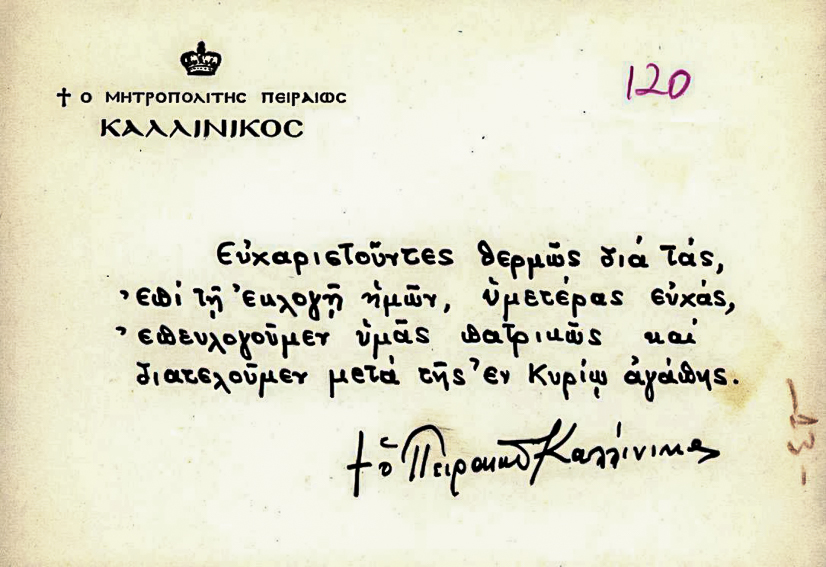 † Ο ΜΗΤΡΟΠΟΛΙΤΗΣ ΠΕΙΡΑΙΩΣ
ΚΑΛΛΙΝΙΚΟΣ
120
Εὐχαριστοῦντες θερμῶς διά τάς,
ἐπί τῇ ἐκλογῇ ἡμῶν, ὑμετέρας εὐχάς,
ἐπευλογοῦμεν ὑμᾶς πατρικῶς καί
διατελοῦμεν μετά τῆς ἐν Κυρίῳ ἀγάπης.
† ὁ Πειραιῶς Καλλίνικος
-13-